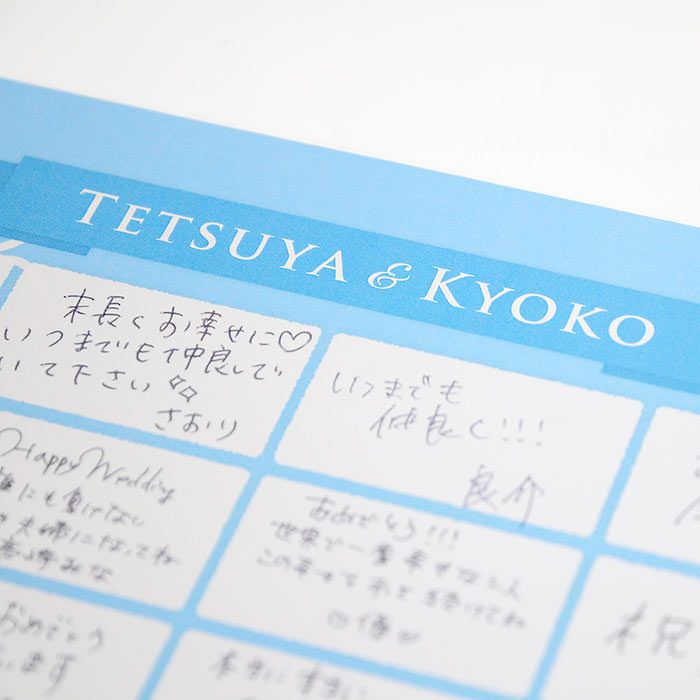 TETSUYA & KYOKO
末長くお幸せに♡
いつまでも仲良しで
いて下さい
さおり
いつまでも
仲良く!!!
良介
Happy Wedding
にも負けない
夫婦になってね
おめでとう!!!
世界で一番幸せな二人
この幸せずっと続けてね
おめでとう
います
本当に幸せに
祝